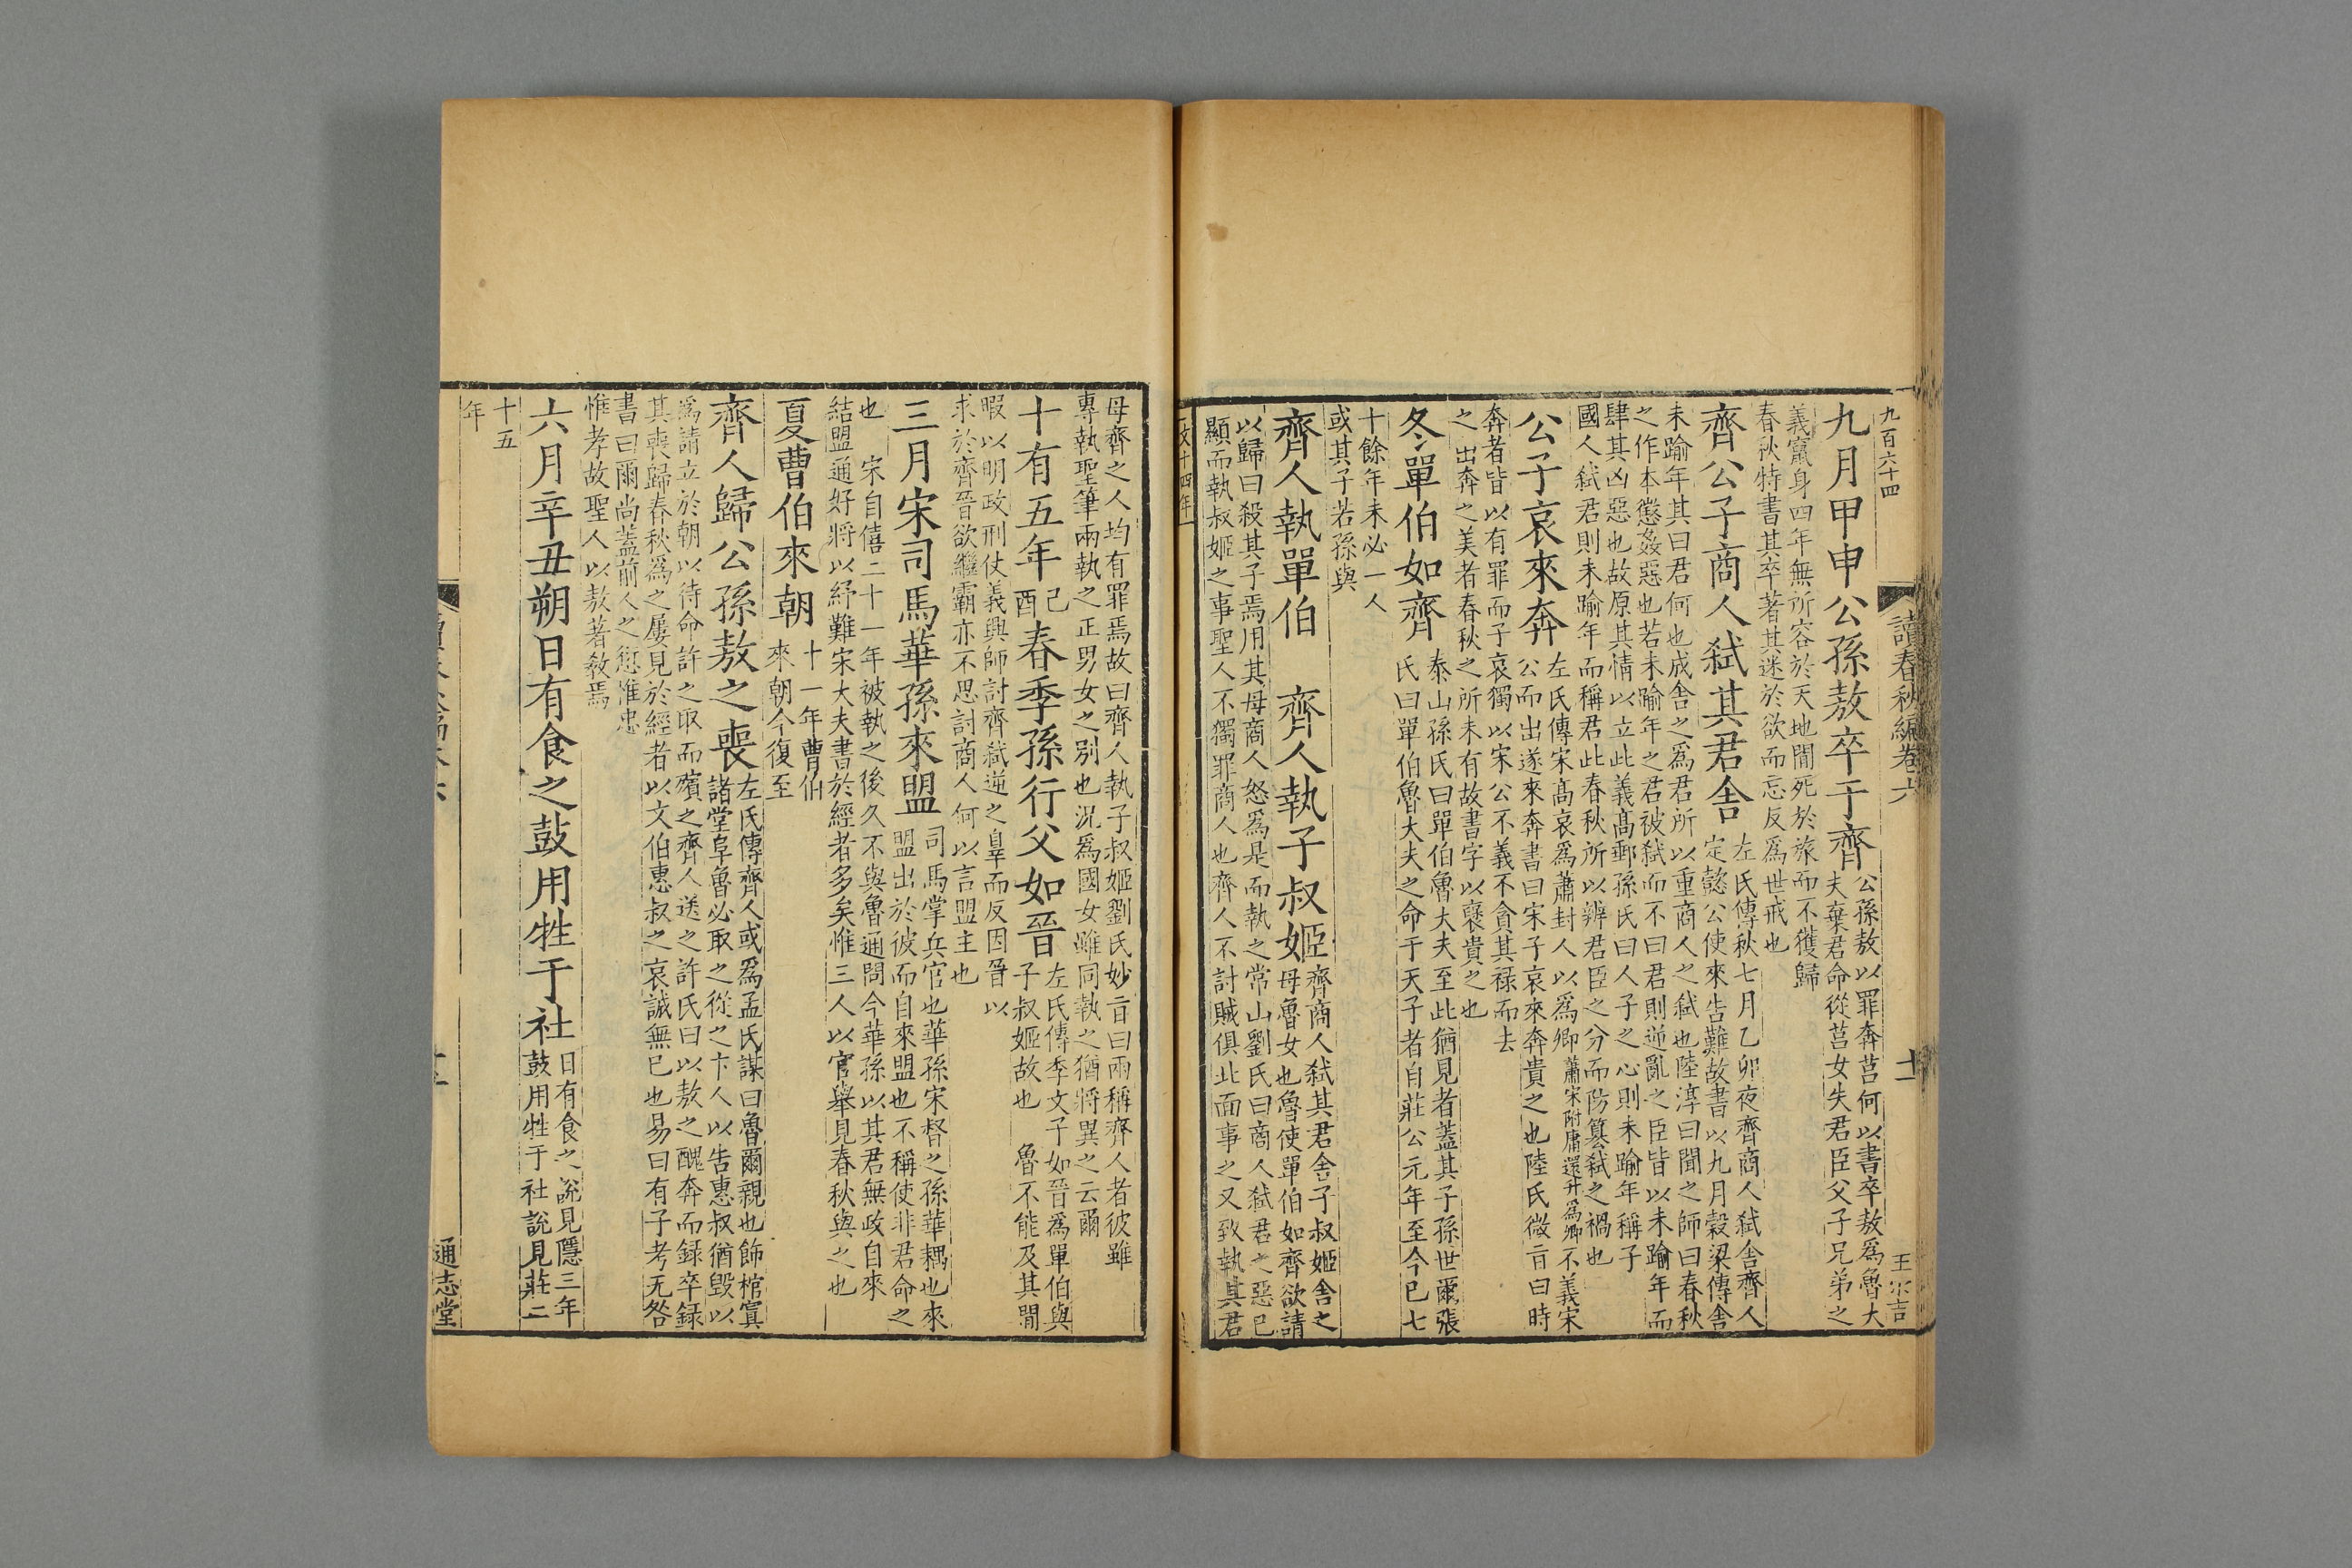 九百六十四
讀春秋編卷六
十一
王尔吉
九月甲申公孫敖卒于齊
公孫敖以罪奔莒何以書卒敖爲魯大
夫棄君命從莒女失君臣父子兄弟之
義竄身四年無所容於天地間死於旅而不獲歸
春秋特書其卒著其迷於欲而忘反爲世戒也
齊公子商人弒其君舍
左氏傳秋七月乙卯夜齊商人弒舍齊人
定懿公使來告難故書以九月榖梁傳舍
未踰年其曰君何也成舍之爲君所以重商人之弒也陸淳曰聞之師曰春秋
之作本懲姦惡也若未踰年之君被弒而不曰君則逆亂之臣皆以未踰年而
肆其凶惡也故原其情以立此義髙郵孫氏曰人子之心則未踰年稱子
國人弒君則未踰年而稱君此春秋所以辨君臣之分而防簒弒之禍也
公子哀來奔
左氏傳宋髙哀爲蕭封人以爲卿蕭宋附庸還升爲卿不義宋
公而出遂來奔書曰宋子哀來奔貴之也陸氏微㫖曰時
奔者皆以有罪而子哀獨以宋公不義不貪其禄而去
之出奔之美者春秋之所未有故書字以襃貴之也
冬單伯如齊
泰山孫氏曰單伯魯大夫至此猶見者蓋其子孫世爾張
氏曰單伯魯大夫之命于天子者自莊公元年至今已七
十餘年未必一人
或其子若孫與
齊人執單伯 齊人執子叔姬
齊商人弒其君舍子叔姬舍之
母魯女也魯使單伯如齊欲請
以歸曰殺其子焉用其母商人怒爲是而執之常山劉氏曰商人弒君之惡已
顯而執叔姬之事聖人不獨罪商人也齊人不討賊俱北面事之又致執其君
文十四年
母齊之人均有罪焉故曰齊人執子叔姬劉氏妙㫖曰兩稱齊人者彼雖
專執聖筆兩執之正男女之別也況爲國女雖同執之猶將異之云爾
十有五年己酉春季孫行父如晉
左氏傳季文子如晉爲單伯與
子叔姬故也 魯不能及其間
暇以明政刑使義興師討齊弒逆之辠而反因晉以
求於齊晉欲繼霸亦不思討商人何以言盟主也
三月宋司馬華孫來盟
司馬掌兵官也華孫宋督之孫華耦也來
盟出於彼而自來盟也不稱使非君命之
也 宋自僖二十一年被執之後久不與魯通問今華孫以其君無政自來
結盟通好將以紓難宋大夫書於經者多矣惟三人以官舉見春秋與之也
夏曹伯來朝
十一年曹伯
來朝今復至
齊人歸公孫敖之喪
左氏傳齊人或爲孟氏謀曰魯爾親也飾棺寘
諸堂阜魯必取之從之卞人以告惠叔猶毁以
爲請立於朝以待命許之取而殯之齊人送之許氏曰以敖之醜奔而録卒録
其喪歸春秋爲之屢見於經者以文伯惠叔之哀誠無已也易曰有子考无咎
書曰爾尚蓋前人之愆惟忠
惟孝故聖人以敖著敎焉
六月辛丑朔日有食之鼓用牲于社
日有食之說見隱三年
鼓用牲于社說見莊二
十五
年
通志堂